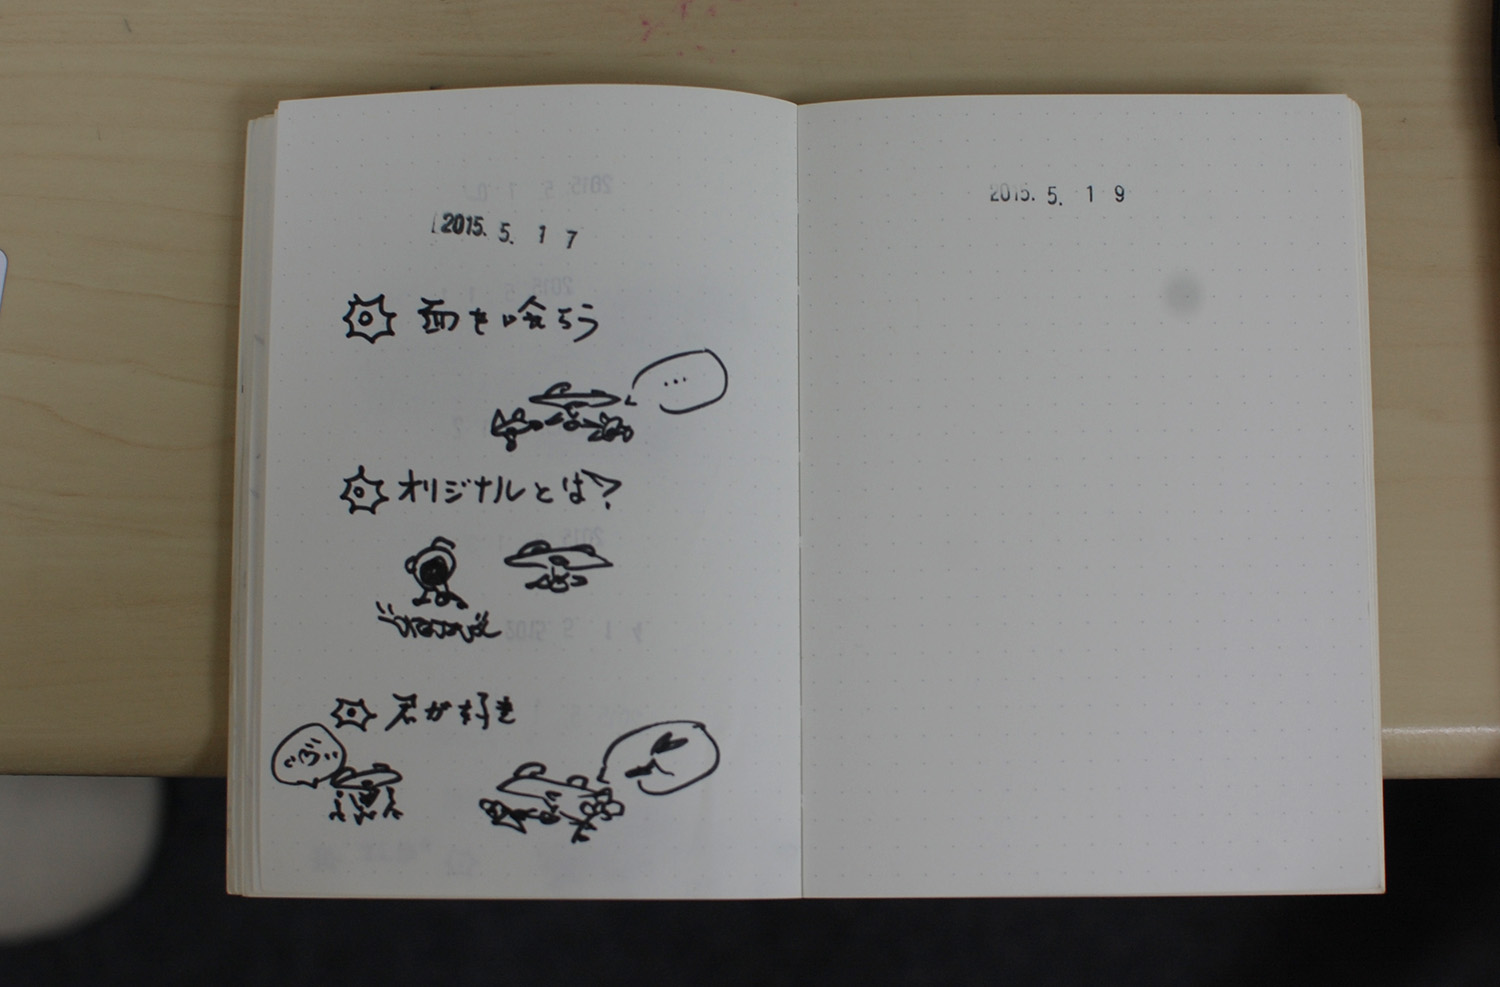 2015. 5. 17
面を喰らう
...
オリジナルとは?
君が好き
2015. 5. 19